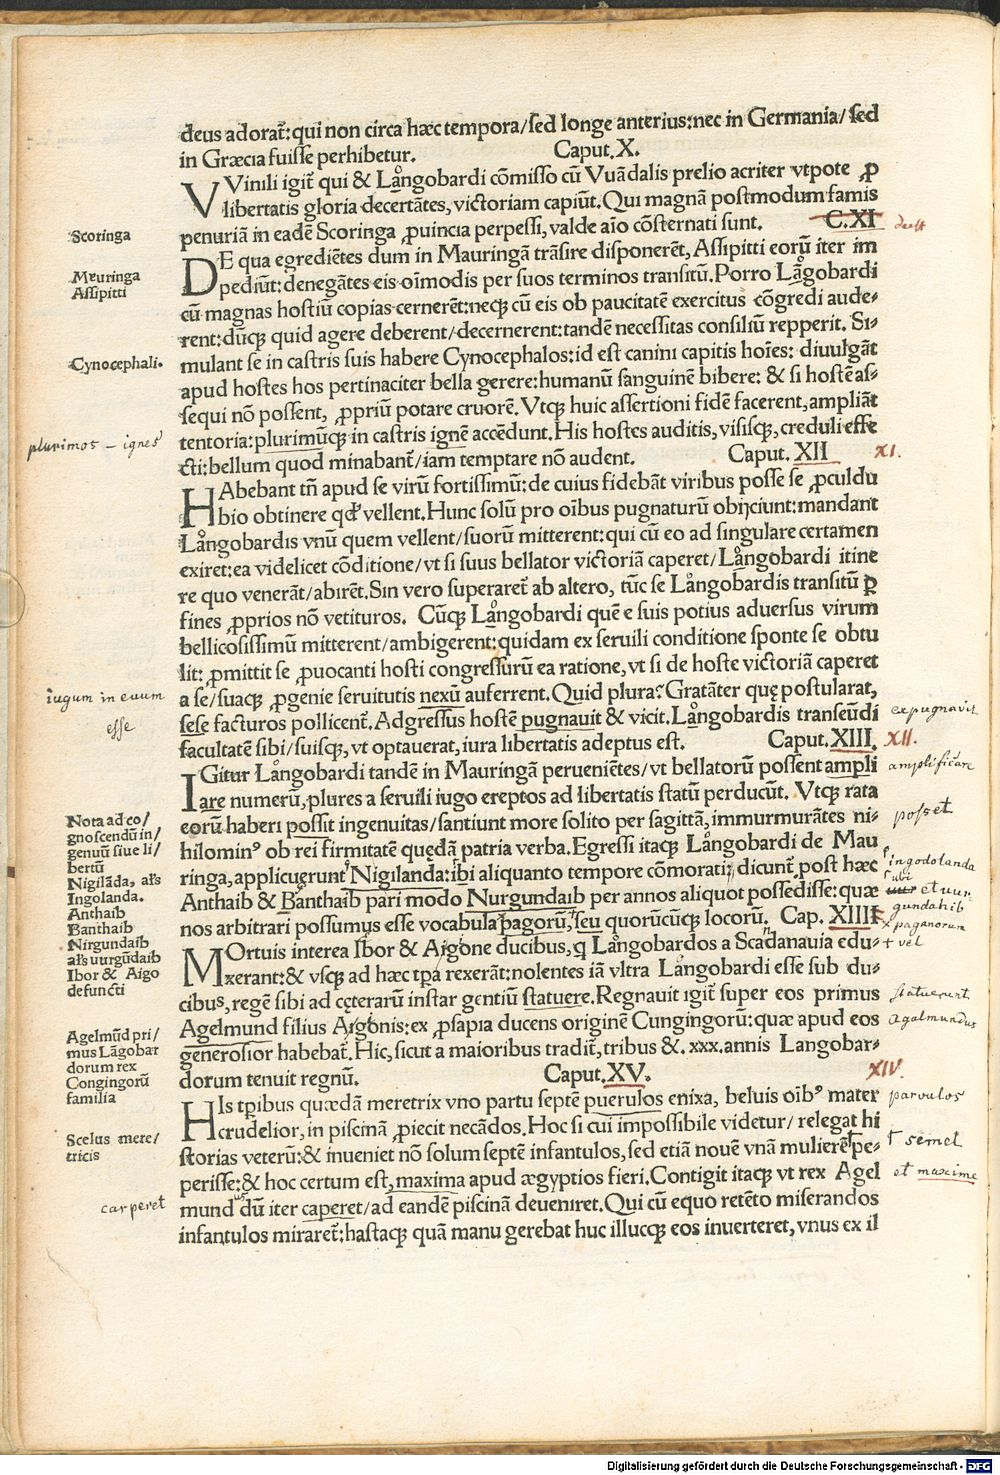 deus adorat̃: qui non circa hæc tempora/ sed longe anterius: nec in Germania/ sed
in Græcia fuisse perhibetur. Caput. X.
VVinili igit̃ qui & Lãgobardi cõmisso cũ Vuãdalis prelio acriter vtpote ꝓ
libertatis gloria decertãtes, victoriam capiũt. Qui magnã postmodum famis
penuriã in eadẽ Scoringa ꝓuincia perpessi, valde aĩo cõsternati sunt. C. XI deest
Scoringa
DE qua egrediẽtes dum in Mauringã trãsire disponerẽt, Assipitti eorũ iter im
pediũt: denegãtes eis oĩmodis per suos terminos transitũ. Porro Lãgobardi
Mauringa
Assipitti
cũ magnas hostiũ copias cernerẽt: neqꝫ cũ eis ob paucitatẽ exercitus cõgredi aude-
rent: dũqꝫ quid agere deberent/ decernerent: tandẽ necessitas consiliũ repperit. Si-
mulant se in castris suis habere Cynocephalos: id est canini capitis hoĩes: diuulgãt
Cynocephali.
apud hostes hos pertinaciter bella gerere: humanũ sanguinẽ bibere: & si hostẽ as-
sequi nõ possent, ꝓpriũ potare cruorẽ. Vtqꝫ huic assertioni fidẽ facerent, ampliãt
tentoria: plurimũqꝫ in castris ignẽ accẽdunt. His hostes auditis, visisqꝫ, creduli effe
plurimos – ignes
cti: bellum quod minabant̃/ iam temptare nõ audent. Caput. XII XI.
HAbebant tñ apud se virũ fortissimũ: de cuius fidebãt viribus posse se ꝓculdu
bio obtinere qđ vellent. Hunc solũ pro oĩbus pugnaturũ obijciunt: mandant
Lãgobardis vnũ quem vellent/ suorũ mitterent: qui cũ eo ad singulare certamen
exiret: ea videlicet cõditione/ vt si suus bellator victoriã caperet/ Lãgobardi itine
re quo venerãt/ abirẽt. Sin vero superaret̃ ab altero, tũc se Lãgobardis transitũ ꝑ
fines ꝓprios nõ vetituros. Cũqꝫ Lãgobardi quẽ e suis potius aduersus virum
bellicosissimũ mitterent/ ambigerent: quidam ex seruili conditione sponte se obtu
lit: ꝓmittit se ꝓuocanti hosti congressurũ ea ratione, vt si de hoste victoriã caperet
a se/ suaqꝫ ꝓgenie seruitutis nexũ auferrent. Quid plura? Gratãter quę postularat,
iugum in euum
esse
sese facturos pollicent̃. Adgressus hostẽ pugnauit & vicit. Lãgobardis transeũdi
expugnavit
facultatẽ sibi/ suisqꝫ, vt optauerat, iura libertatis adeptus est. Caput. XIII. XII.
IGitur Lãgobardi tandẽ in Mauringã perueniẽtes/ vt bellatorũ possent ampli
amplificare
are numerũ, plures a seruili iugo ereptos ad libertatis statũ perducũt. Vtqꝫ rata
eorũ haberi possit ingenuitas/ santiunt more solito per sagittã, immurmurãtes ni-
posset
hilomin⁹ ob rei firmitatẽ quędã patria verba. Egressi itaqꝫ Lãgobardi de Mau
ringa, applicuęrunt Nigilanda: ibi aliquanto tempore cõmorati: dicunt̃ post hæc
ingodolanda
ubi
Anthaib & Banthaib pari modo Nurgundaib per annos aliquot possedisse: quæ
et uur
gundahib
nos arbitrari possumus esse vocabula pagorũ, seu quorũcũqꝫ locorũ. Cap. XIIII
paganorum
+ vel
Nota ad co/
gnoscendũ in/
genuũ siue li/
bertũ
Nigilãda, al's
Ingolanda.
Anthaib
Banthaib
Nirgundaib
al's uurgũdaib
Ibor & Aigo
defuncti
MOrtuis interea Ibor & Aigone ducibus, q̃ Lãgobardos a Scadanauia edu-
xerant: & vsqꝫ ad hæc tꝑa rexerãt: nolentes iã vltra Lãgobardi esse sub du-
cibus, regẽ sibi ad cęterarũ instar gentiũ statuere. Regnauit igit̃ super eos primus
statuerunt
Agelmund filius Aigonis: ex ꝓsapia ducens originẽ Cungingorũ: quæ apud eos
agalmundus
generosior habebat̃. Hic, sicut a maioribus tradit̃, tribus &. xxx. annis Langobar-
dorum tenuit regnũ. Caput. XV. XIV.
Agelmũd pri/
mus Lãgobar
dorum rex
Congingorũ
familia
HIs tꝑibus quædã meretrix vno partu septẽ puerulos enixa, beluis oĩb⁹ mater
parvulos
crudelior, in piscinã ꝓiecit necãdos. Hoc si cui impossibile videtur/ relegat hi
storias veterũ: & inueniet nõ solum septẽ infantulos, sed etiã nouẽ vnã mulierẽ pe-
† semel
Scelus mere/
tricis
perisse: & hoc certum est, maxima apud ægyptios fieri. Contigit itaqꝫ vt rex Agel
et maxime
mund dũ iter caperet/ ad eandẽ piscinã deueniret. Qui cũ equo retẽto miserandos
carperet
infantulos miraret̃: hastaqꝫ quã manu gerebat huc illucqꝫ eos inuerteret, vnus ex il
Digitalisierung gefördert durch die Deutsche Forschungsgemeinschaft - DFG